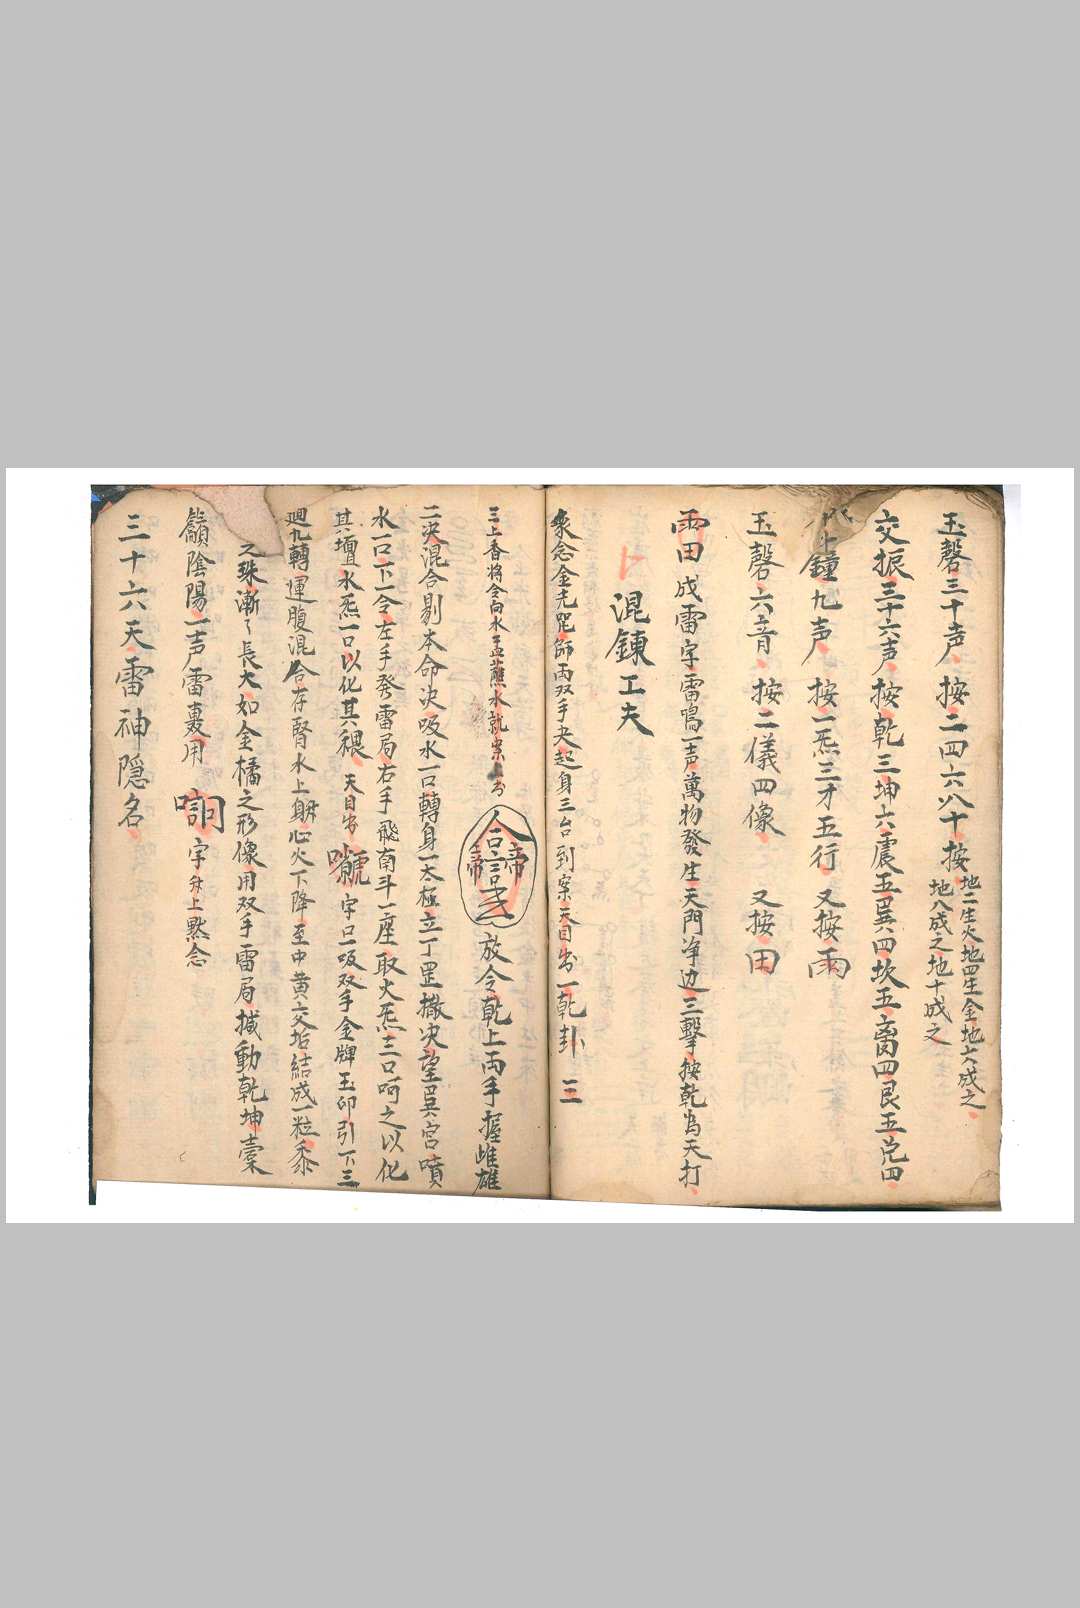 玉磬三十声按二四六八十按地二生火地四生金地六成之
地八成之地十成之
交振三十六声按乾三坤六震五巽四坎五离四艮五兊四
上鐘九声按一炁三才五行又按雨
玉磬六音按二儀四像又按田
雨田成雷字雷鳴一声萬物發生天門净边三擊按乾為天打
混鍊工夫
象念金光咒師両双手夬起身三台到案天目出一乾卦三
三上香将令向水盂蘸水就案上
放令乾上両手握雌雄
二决混合剔本命决吸水一口轉身一太極立丁罡撒决望巽宫噴
水一口下一令左手發雷局右手飛南斗一座取火炁三口呵之以化
其壇水炁一口以化其穢天目出字口一吸双手金牌玉印引下三
廻九轉運腹混合存腎水上心火下降至中黄交垢結成一粒黍
之珠漸々長大如金橘之形像用双手雷局撼動乾坤橐
籟陰陽一声雷轟用字升上黙念
三十六天雷神隠名